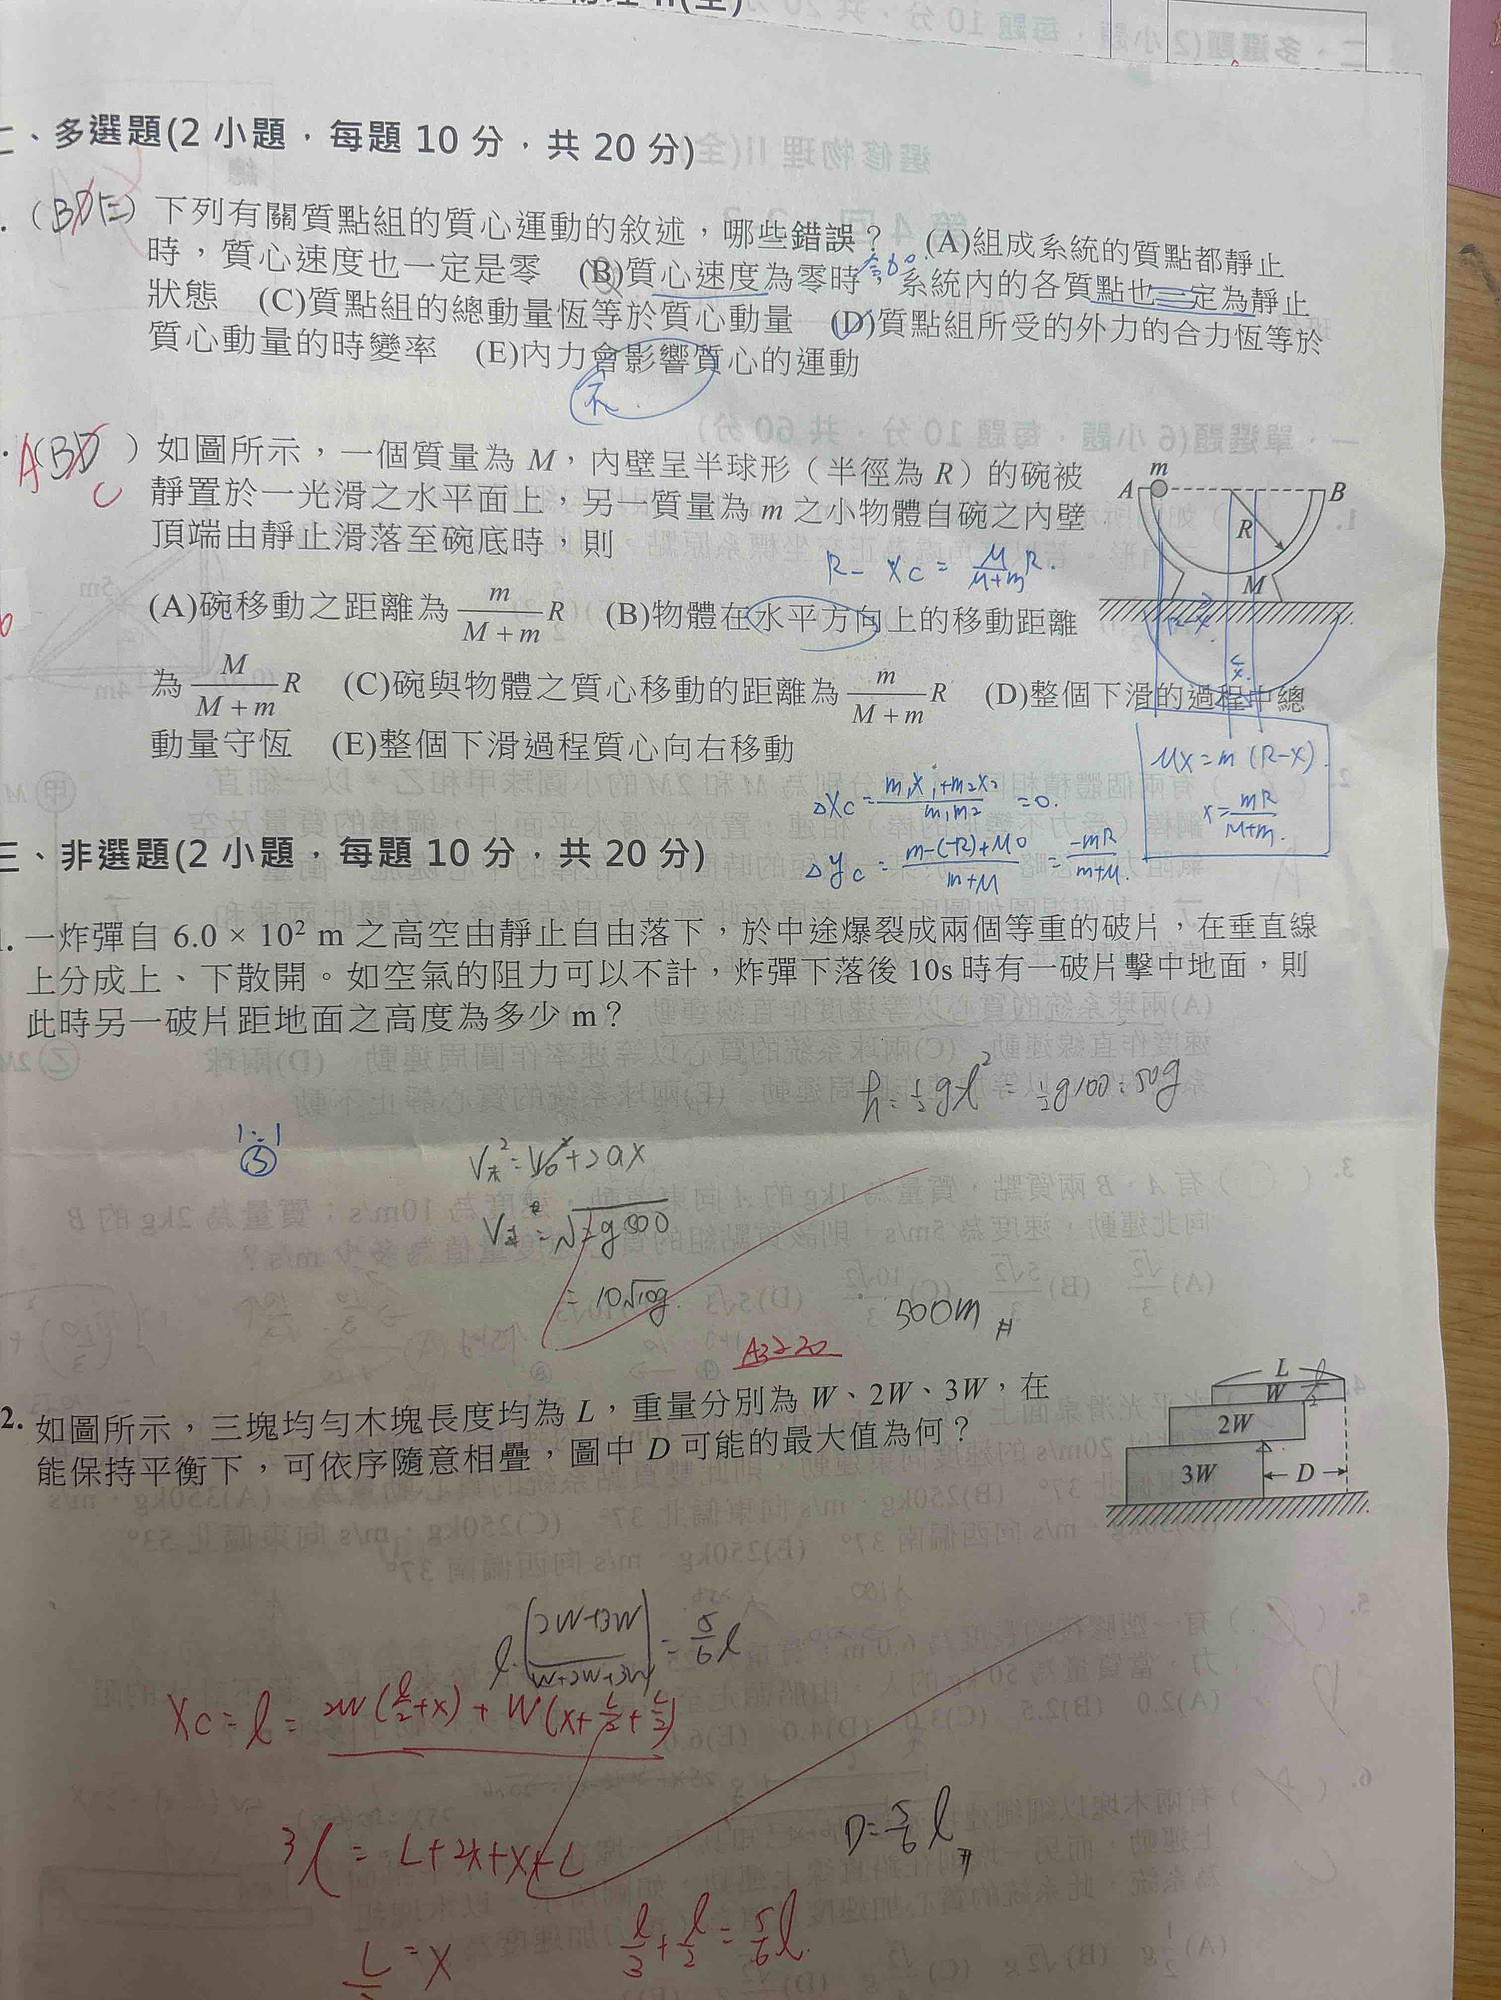 二、多選題(2 小題，每題 10 分，共 20 分)
(BDE) 下列有關質點組的質心運動的敘述，哪些錯誤？ (A)組成系統的質點都靜止
時，質心速度也一定是零 (B)質心速度為零時，系統內的各質點也一定為靜止
狀態 (C)質點組的總動量恆等於質心動量 (D)質點組所受的外力的合力恆等於
質心動量的時變率 (E)內力會影響質心的運動
不
A(BD ) 如圖所示，一個質量為 M，內壁呈半球形（半徑為 R）的碗被
C
靜置於一光滑之水平面上，另一質量為 m 之小物體自碗之內壁
頂端由靜止滑落至碗底時，則
m
A B
R
M
R - Xc = M/(M+m) R.
(A)碗移動之距離為 m/(M+m) R (B)物體在水平方向上的移動距離
為 M/(M+m) R (C)碗與物體之質心移動的距離為 m/(M+m) R (D)整個下滑的過程中總
動量守恆 (E)整個下滑過程質心向右移動
Mx = m (R-x)
x = mR/(M+m).
ΔXc = (m₁x₁+m₂x₂)/(m₁m₂) = 0.
Δyc = (m-(-R)+M0)/(m+M) = -mR/(m+M).
三、非選題(2 小題，每題 10 分，共 20 分)
1. 一炸彈自 6.0 × 10² m 之高空由靜止自由落下，於中途爆裂成兩個等重的破片，在垂直線
上分成上、下散開。如空氣的阻力可以不計，炸彈下落後 10s 時有一破片擊中地面，則
此時另一破片距地面之高度為多少 m？
h = ½gt² = ½g100 = 50g
1:1
V末² = V0² + 2ax
= 10√10g.
500m #
2. 如圖所示，三塊均勻木塊長度均為 L，重量分別為 W、2W、3W，在
能保持平衡下，可依序隨意相疊，圖中 D 可能的最大值為何？
L
W l/2
2W
3W
D
l·((2W+3W)/(W+2W+3W)) = 5/6 l
Xc = l = 2W(l/2+x) + W(x+L/2+L/2)
D = 5/6 l #
3l = L+2x+x+L
L/3 = x
l/3 + l/2 = 5/6 l.